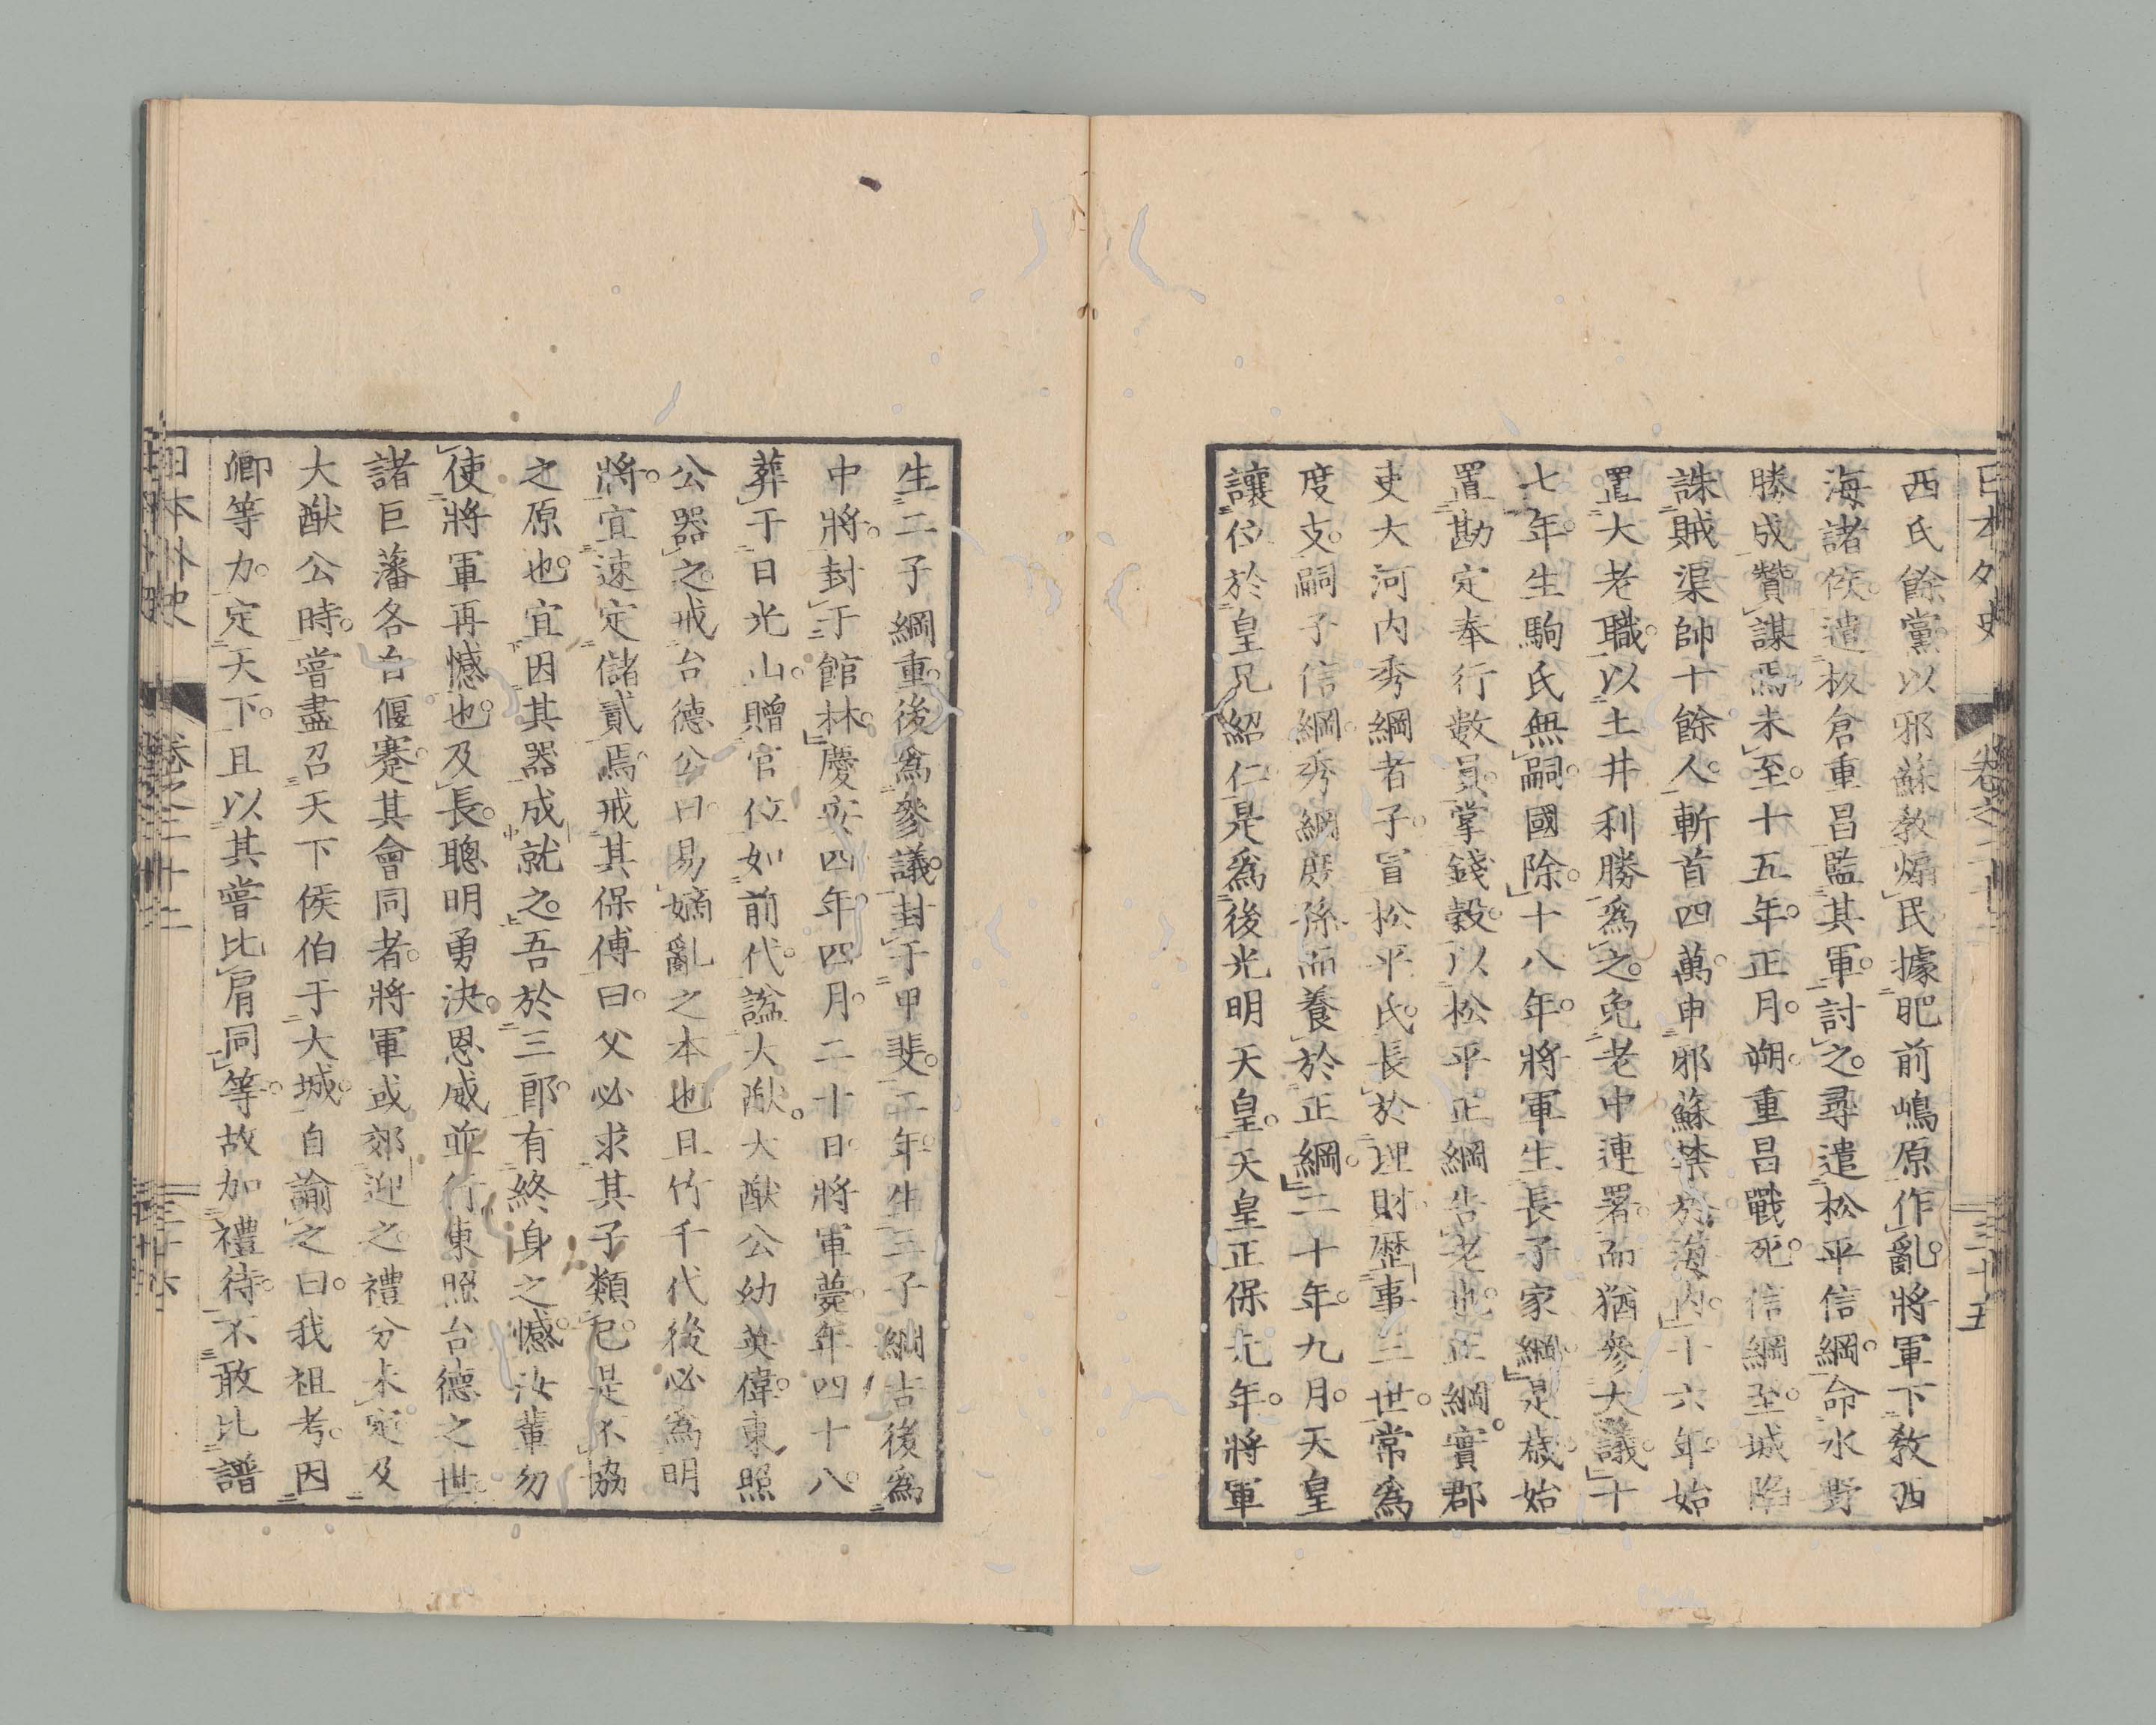 日本外史 卷之二十二 三十五
西氏餘黨以邪蘇教煽民據肥前嶋原作亂。將軍下教西
海諸侯。遣板倉重昌監其軍。討之。尋遣松平信綱。命水野
勝成贊謀焉。未至。十五年。正月。朔。重昌戰死。信綱至。城陷
誅賊渠帥十餘人。斬首四萬。申邪蘇禁於海內。十六年。始
置大老職。以土井利勝爲之。免老中連署。而猶參大議。十
七年。生駒氏無嗣。國除。十八年。將軍生長子家綱。是歲。始
置勘定奉行數員。掌錢穀。以松平正綱告老也。正綱。實郡
吏大河內秀綱者子。冒松平氏。長於理財。歷事三世。常爲
度支。嗣子信綱。秀綱庶孫而養於正綱。二十年。九月。天皇
讓位於皇兄紹仁。是爲後光明天皇。天皇正保元年。將軍
生二子綱重。後爲參議。封于甲斐。二年。生三子綱吉後爲
中將。封于館林。慶安四年。四月。二十日。將軍薨。年四十八。
葬于日光山。贈官位如前代。諡大猷。大猷公幼英偉。東照
公器之。戒台德公曰。易嫡亂之本也。且竹千代後必爲明
將。宜速定儲貳焉。戒其保傅曰。父必求其子類己。是不協
之原也。宜因其器成就之。吾於三郎。有終身之憾。汝輩勿
使將軍再憾也。及長。聰明勇決。恩威並行。東照台德之世。
諸巨藩各自偃蹇。其會同者。將軍或郊迎之。之禮分未定及
大猷公時。嘗盡召天下侯伯于大城。自諭之曰。我祖考。因
卿等力。定天下。且以其嘗比肩同等。故加禮待。不敢比譜
日本外史 卷之二十二 三十六